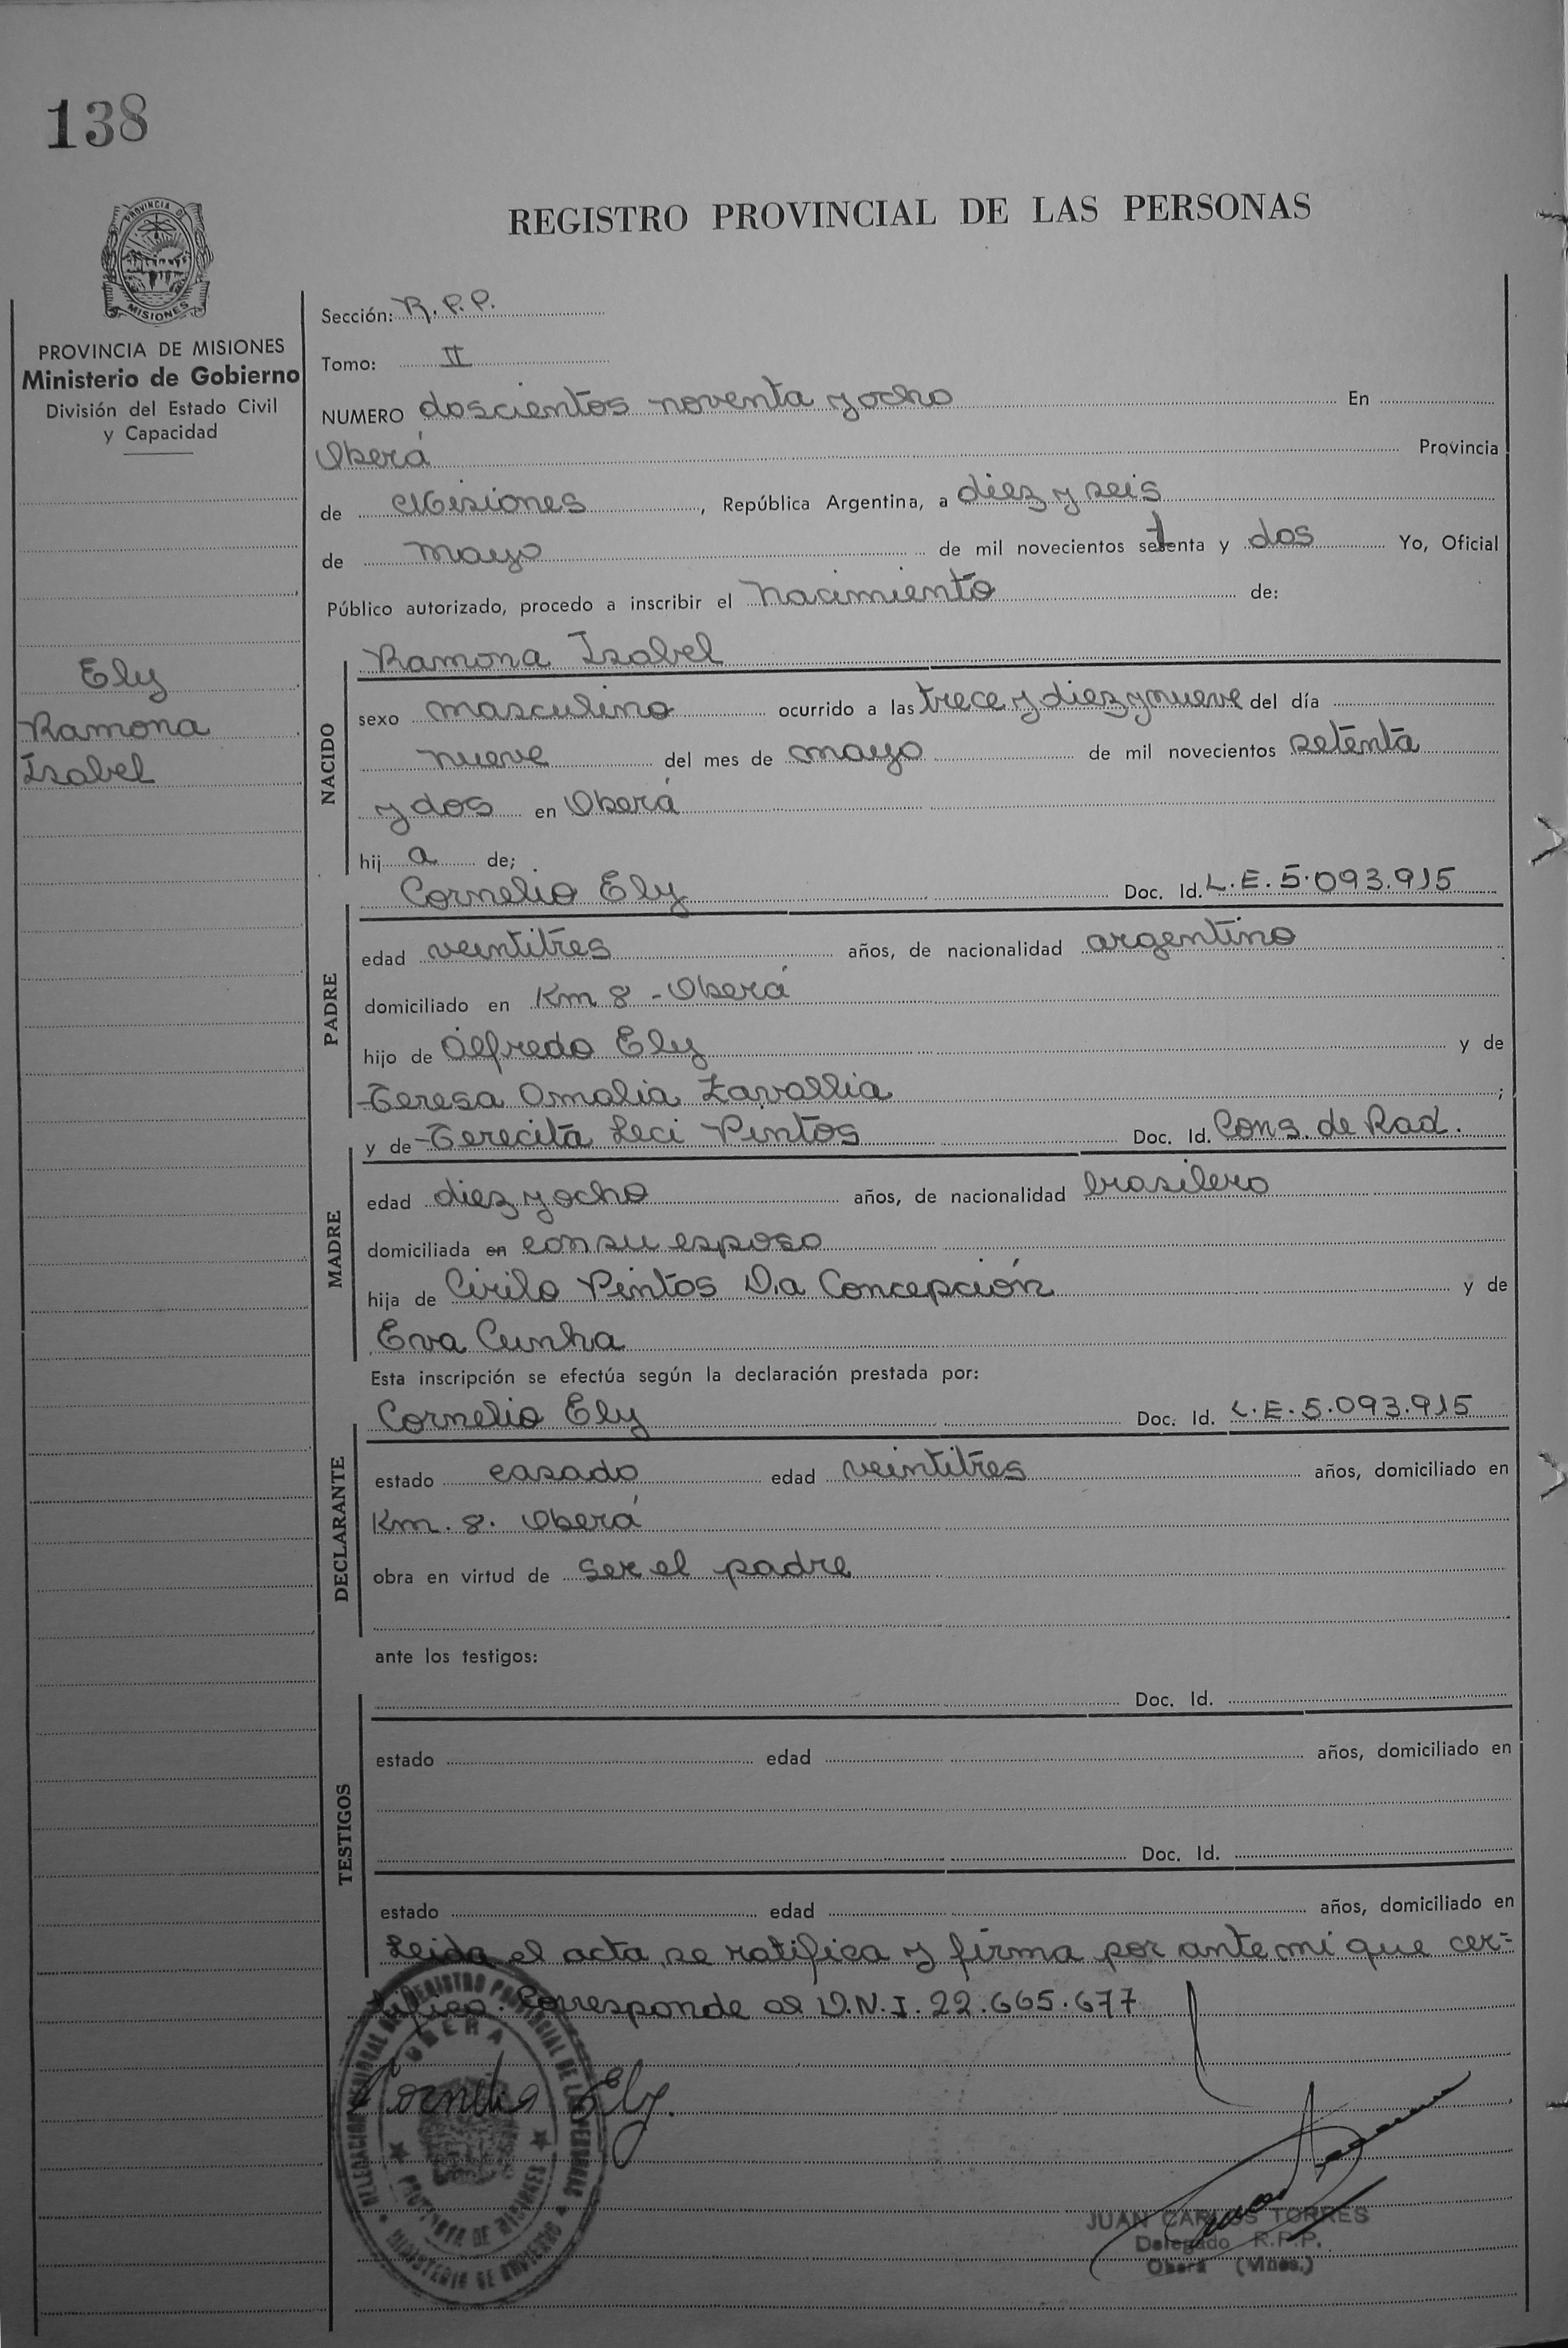 138
REGISTRO PROVINCIAL DE LAS PERSONAS
PROVINCIA DE MISIONES
PROVINCIA DE MISIONES
Ministerio de Gobierno
División del Estado Civil
y Capacidad
Ely
Ramona
Isabel
Sección: R. P. P.
Tomo: II
NUMERO doscientos noventa y ocho En
Oberá Provincia
de Misiones, República Argentina, a diez y seis
de mayo de mil novecientos setenta y dos Yo, Oficial
Público autorizado, procedo a inscribir el nacimiento de:
NACIDO
Ramona Isabel
sexo masculino ocurrido a las trece y diez y nueve del día
nueve del mes de mayo de mil novecientos setenta
y dos en Oberá
hij a de;
PADRE
Cornelio Ely Doc. Id. L.E. 5.093.915
edad veintitres años, de nacionalidad argentino
domiciliado en Km 8 - Oberá
hijo de Alfredo Ely y de
Teresa Amalia Zavallia ;
MADRE
y de Terecita Leci Pintos Doc. Id. Cons. de Rad.
edad diez y ocho años, de nacionalidad brasilero
domiciliada en con su esposo
hija de Cirilo Pintos Da Concepción y de
Eva Cunha
Esta inscripción se efectúa según la declaración prestada por:
DECLARANTE
Cornelio Ely Doc. Id. L.E. 5.093.915
estado casado edad veintitres años, domiciliado en
Km. 8. Oberá
obra en virtud de ser el padre
ante los testigos:
TESTIGOS
Doc. Id.
estado edad años, domiciliado en
Doc. Id.
estado edad años, domiciliado en
Leida el acta se ratifica y firma por ante mi que cer=
tifico. Corresponde al D.N.I. 22.665.677
Cornelio Ely.
DELEGACION REGIONAL DEL REGISTRO PROVINCIAL DE LAS PERSONAS
OBERA
PROVINCIA DE MISIONES
MINISTERIO DE GOBIERNO
JUAN CARLOS TORRES
Delegado R.P.P.
Oberá (Mnes.)